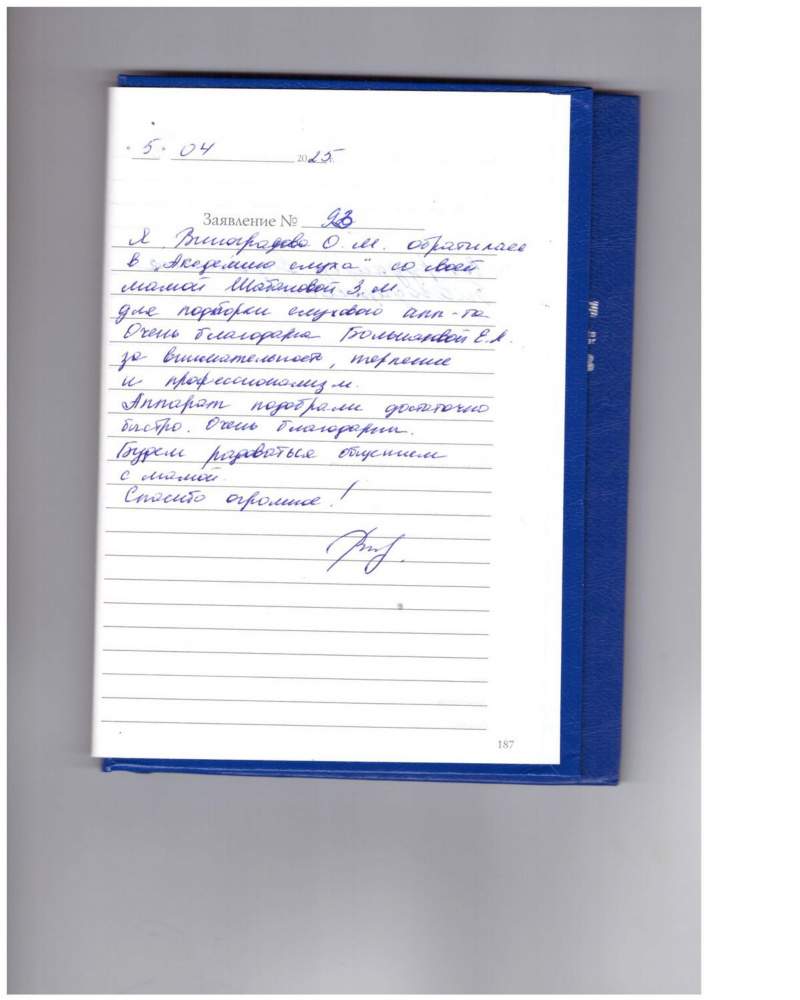 "5" 04 2025
Заявление № 93
Я, Виноградова О. М. обратилась
в "Академию слуха" со своей
мамой З. М.
для подборки слухового апп-та
Очень благодарна Е. А.
за внимательность, терпение
и профессионализм.
Аппарат подобрали достаточно
быстро. Очень благодарны.
Будем радоваться общением
с мамой.
Спасибо огромное!
187